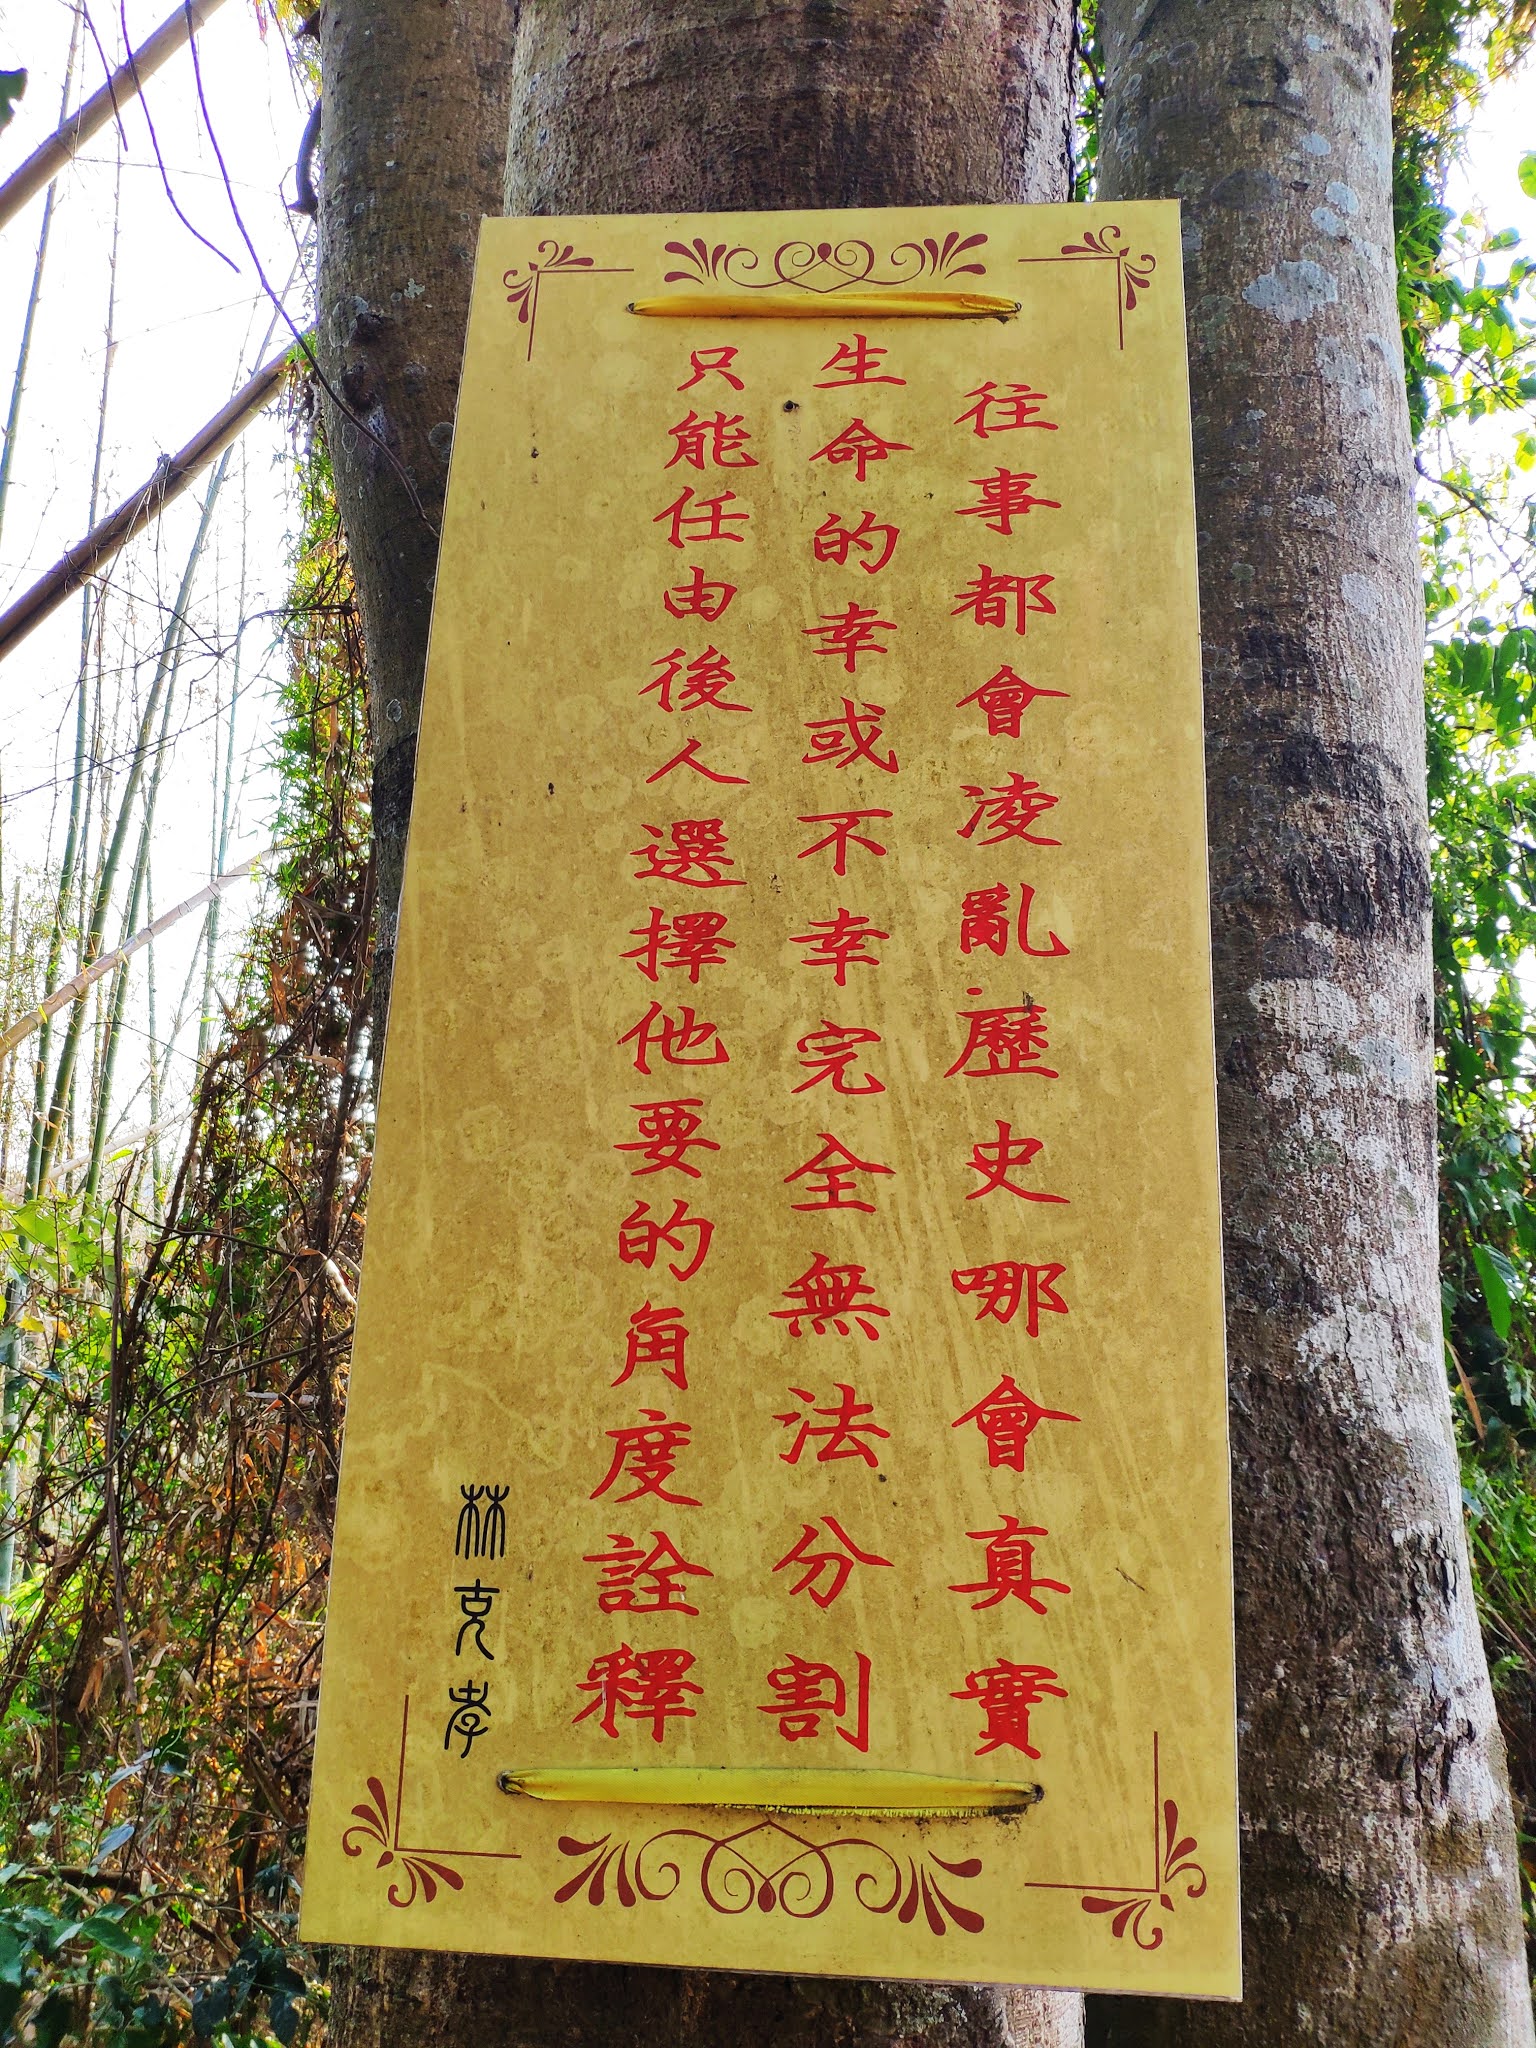 往事都會凌亂歷史哪會真實
生命的幸或不幸完全無法分割
只能任由後人選擇他要的角度詮釋
林克孝